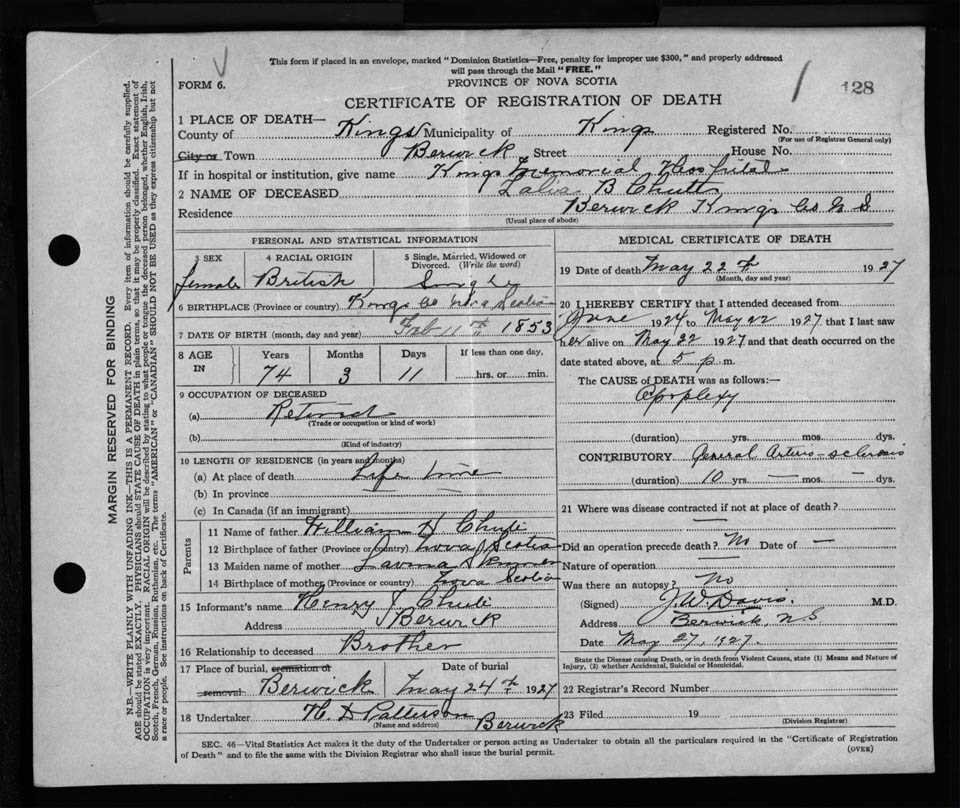 This form if placed in an envelope, marked "Dominion Statistics—Free, penalty for improper use $300," and properly addressed
will pass through the Mail "FREE."
FORM 6.
PROVINCE OF NOVA SCOTIA
128
CERTIFICATE OF REGISTRATION OF DEATH
1 PLACE OF DEATH—
County of Kings Municipality of Kings Registered No.
(For use of Registrar General only)
City or Town Berwick Street House No.
If in hospital or institution, give name Kings Memorial Hospital
2 NAME OF DECEASED B Chute
Residence Berwick Kings Co N S
(Usual place of abode)
PERSONAL AND STATISTICAL INFORMATION
3 SEX
Female
4 RACIAL ORIGIN
British
5 Single, Married, Widowed or
Divorced. (Write the word)
Single
6 BIRTHPLACE (Province or country) Kings Co Nova Scotia
7 DATE OF BIRTH (month, day and year) Feb 11th 1853
8 AGE
IN
Years
74
Months
3
Days
11
If less than one day,
hrs. or min.
9 OCCUPATION OF DECEASED
(a) Retired
(Trade or occupation or kind of work)
(b)
(Kind of industry)
10 LENGTH OF RESIDENCE (in years and months)
(a) At place of death Life time
(b) In province —
(c) In Canada (if an immigrant)
Parents
11 Name of father William H Chute
12 Birthplace of father (Province or country) Nova Scotia
13 Maiden name of mother Lavinia Skinner
14 Birthplace of mother (Province or country) Nova Scotia
15 Informant's name Henry Chute
Address Berwick
16 Relationship to deceased Brother
17 Place of burial, cremation or
removal Berwick
Date of burial
May 24th 1927
18 Undertaker H. D Patterson Berwick
(Name and address)
MEDICAL CERTIFICATE OF DEATH
19 Date of death May 22nd 1927
(Month, day and year)
20 I HEREBY CERTIFY that I attended deceased from
June 1924 to May 22 1927 that I last saw
her alive on May 22 1927 and that death occurred on the
date stated above, at 5 p.m.
The CAUSE of DEATH was as follows:—
Apoplexy
(duration) yrs. mos. dys.
CONTRIBUTORY General Arterio-sclerosis
(duration) 10 yrs. — mos. — dys.
21 Where was disease contracted if not at place of death?
—
Did an operation precede death? No Date of —
Nature of operation —
Was there an autopsy? No
(Signed) J.W Davis. M.D.
Address Berwick, N.S
Date May 27, 1927.
State the Disease causing Death, or in death from Violent Causes, state (1) Means and Nature of
Injury, (2) whether Accidental, Suicidal or Homicidal.
22 Registrar's Record Number
23 Filed 19
(Division Registrar)
SEC. 46—Vital Statistics Act makes it the duty of the Undertaker or person acting as Undertaker to obtain all the particulars required in the "Certificate of Registration
of Death" and to file the same with the Division Registrar who shall issue the burial permit.
(OVER)
MARGIN RESERVED FOR BINDING
N.B.—WRITE PLAINLY WITH UNFADING INK—THIS IS A PERMANENT RECORD. Every item of information should be carefully supplied.
AGE should be stated EXACTLY. PHYSICIANS should STATE CAUSE OF DEATH in plain terms, so that it may be properly classified. Exact statement of
OCCUPATION is very important. RACIAL ORIGIN will be described by stating to what people or tongue the deceased person belonged, whether English, Irish,
Scotch, French, German, Russian, Ruthenian, etc. The terms "AMERICAN" or "CANADIAN" SHOULD NOT BE USED as they express citizenship but not
a race or people. See instructions on back of Certificate.